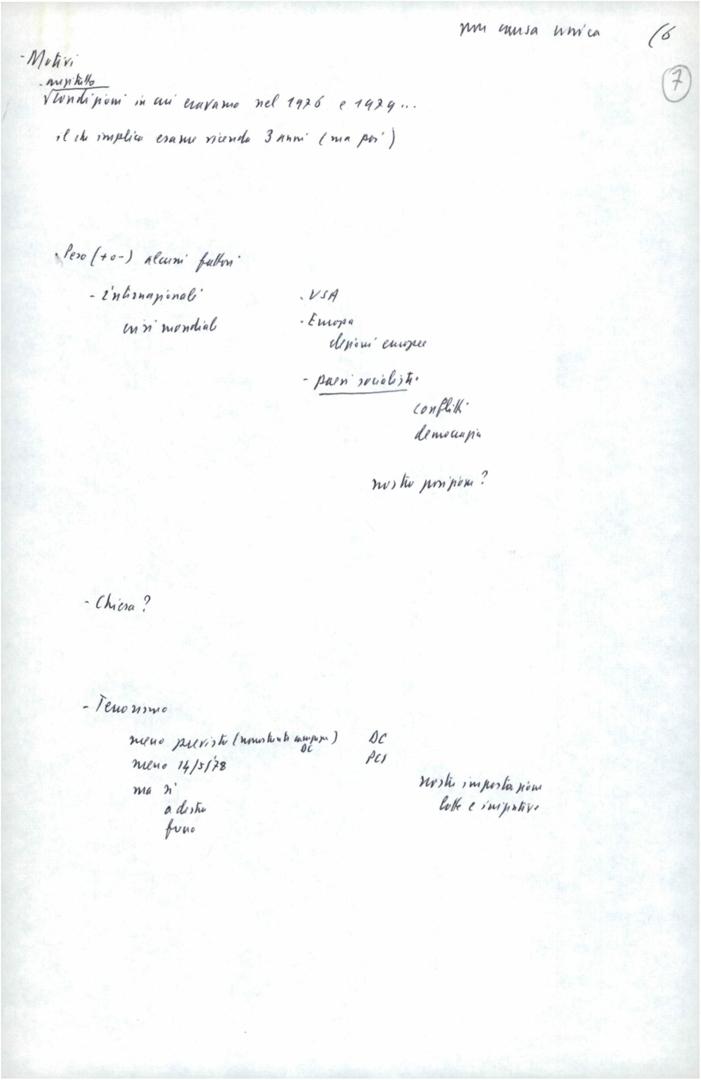 non causa unica (6
7
- Motivi
. rispetto
condizioni in cui eravamo nel 1976 e 1979...
il che implica esame vicenda 3 anni (ma poi)
. Però (+ o -) alcuni fattori
- internazionali . USA
crisi mondiale . Europa
elezioni europee
- paesi socialisti
conflitti
democrazia
nostra posizione?
- Chiesa?
- Terrorismo
meno previsto (nonostante campagna DC) DC
meno 14/5/78 PCI
ma sì nostra impostazione
a destra lotte e iniziative